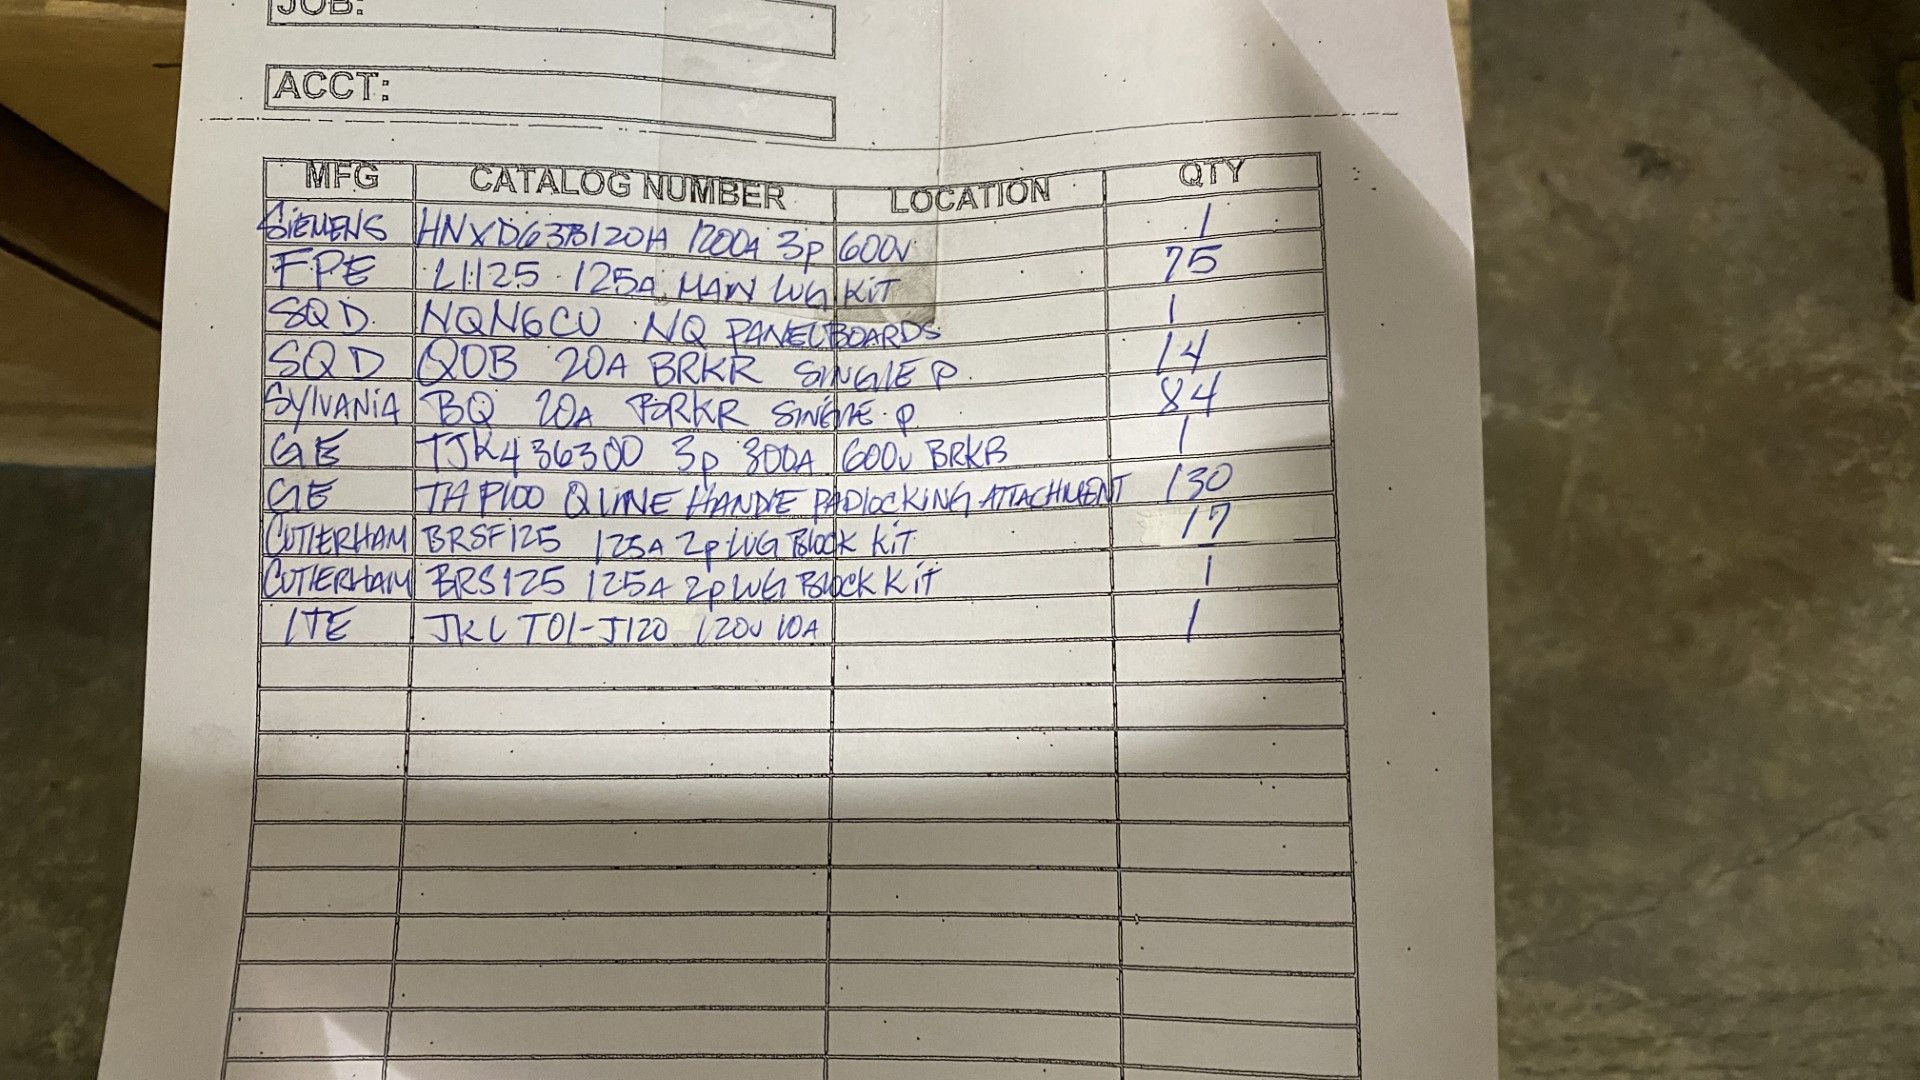 JOB:
ACCT:
MFG CATALOG NUMBER LOCATION QTY
SIEMENS HNXD63B120H 1200A 3p 600V 1
FPE L1125 125A MAIN LUG KIT 75
SQD. NQN6CU NQ PANELBOARDS 1
SQD QOB 20A BRKR SINGLE P. 14
SYLVANIA BQ 20A BRKR SINGLE P 84
GE TJK436300 3p 300A 600V BRKR 1
GE THP100 QLINE HANDLE PADLOCKING ATTACHMENT 130
CUTLERHAM BRSF125 125A 2p LUG BLOCK KIT 17
CUTLERHAM BRS125 125A 2p LUG BLOCK KIT 1
ITE JKL T01-J120 120V 10A 1